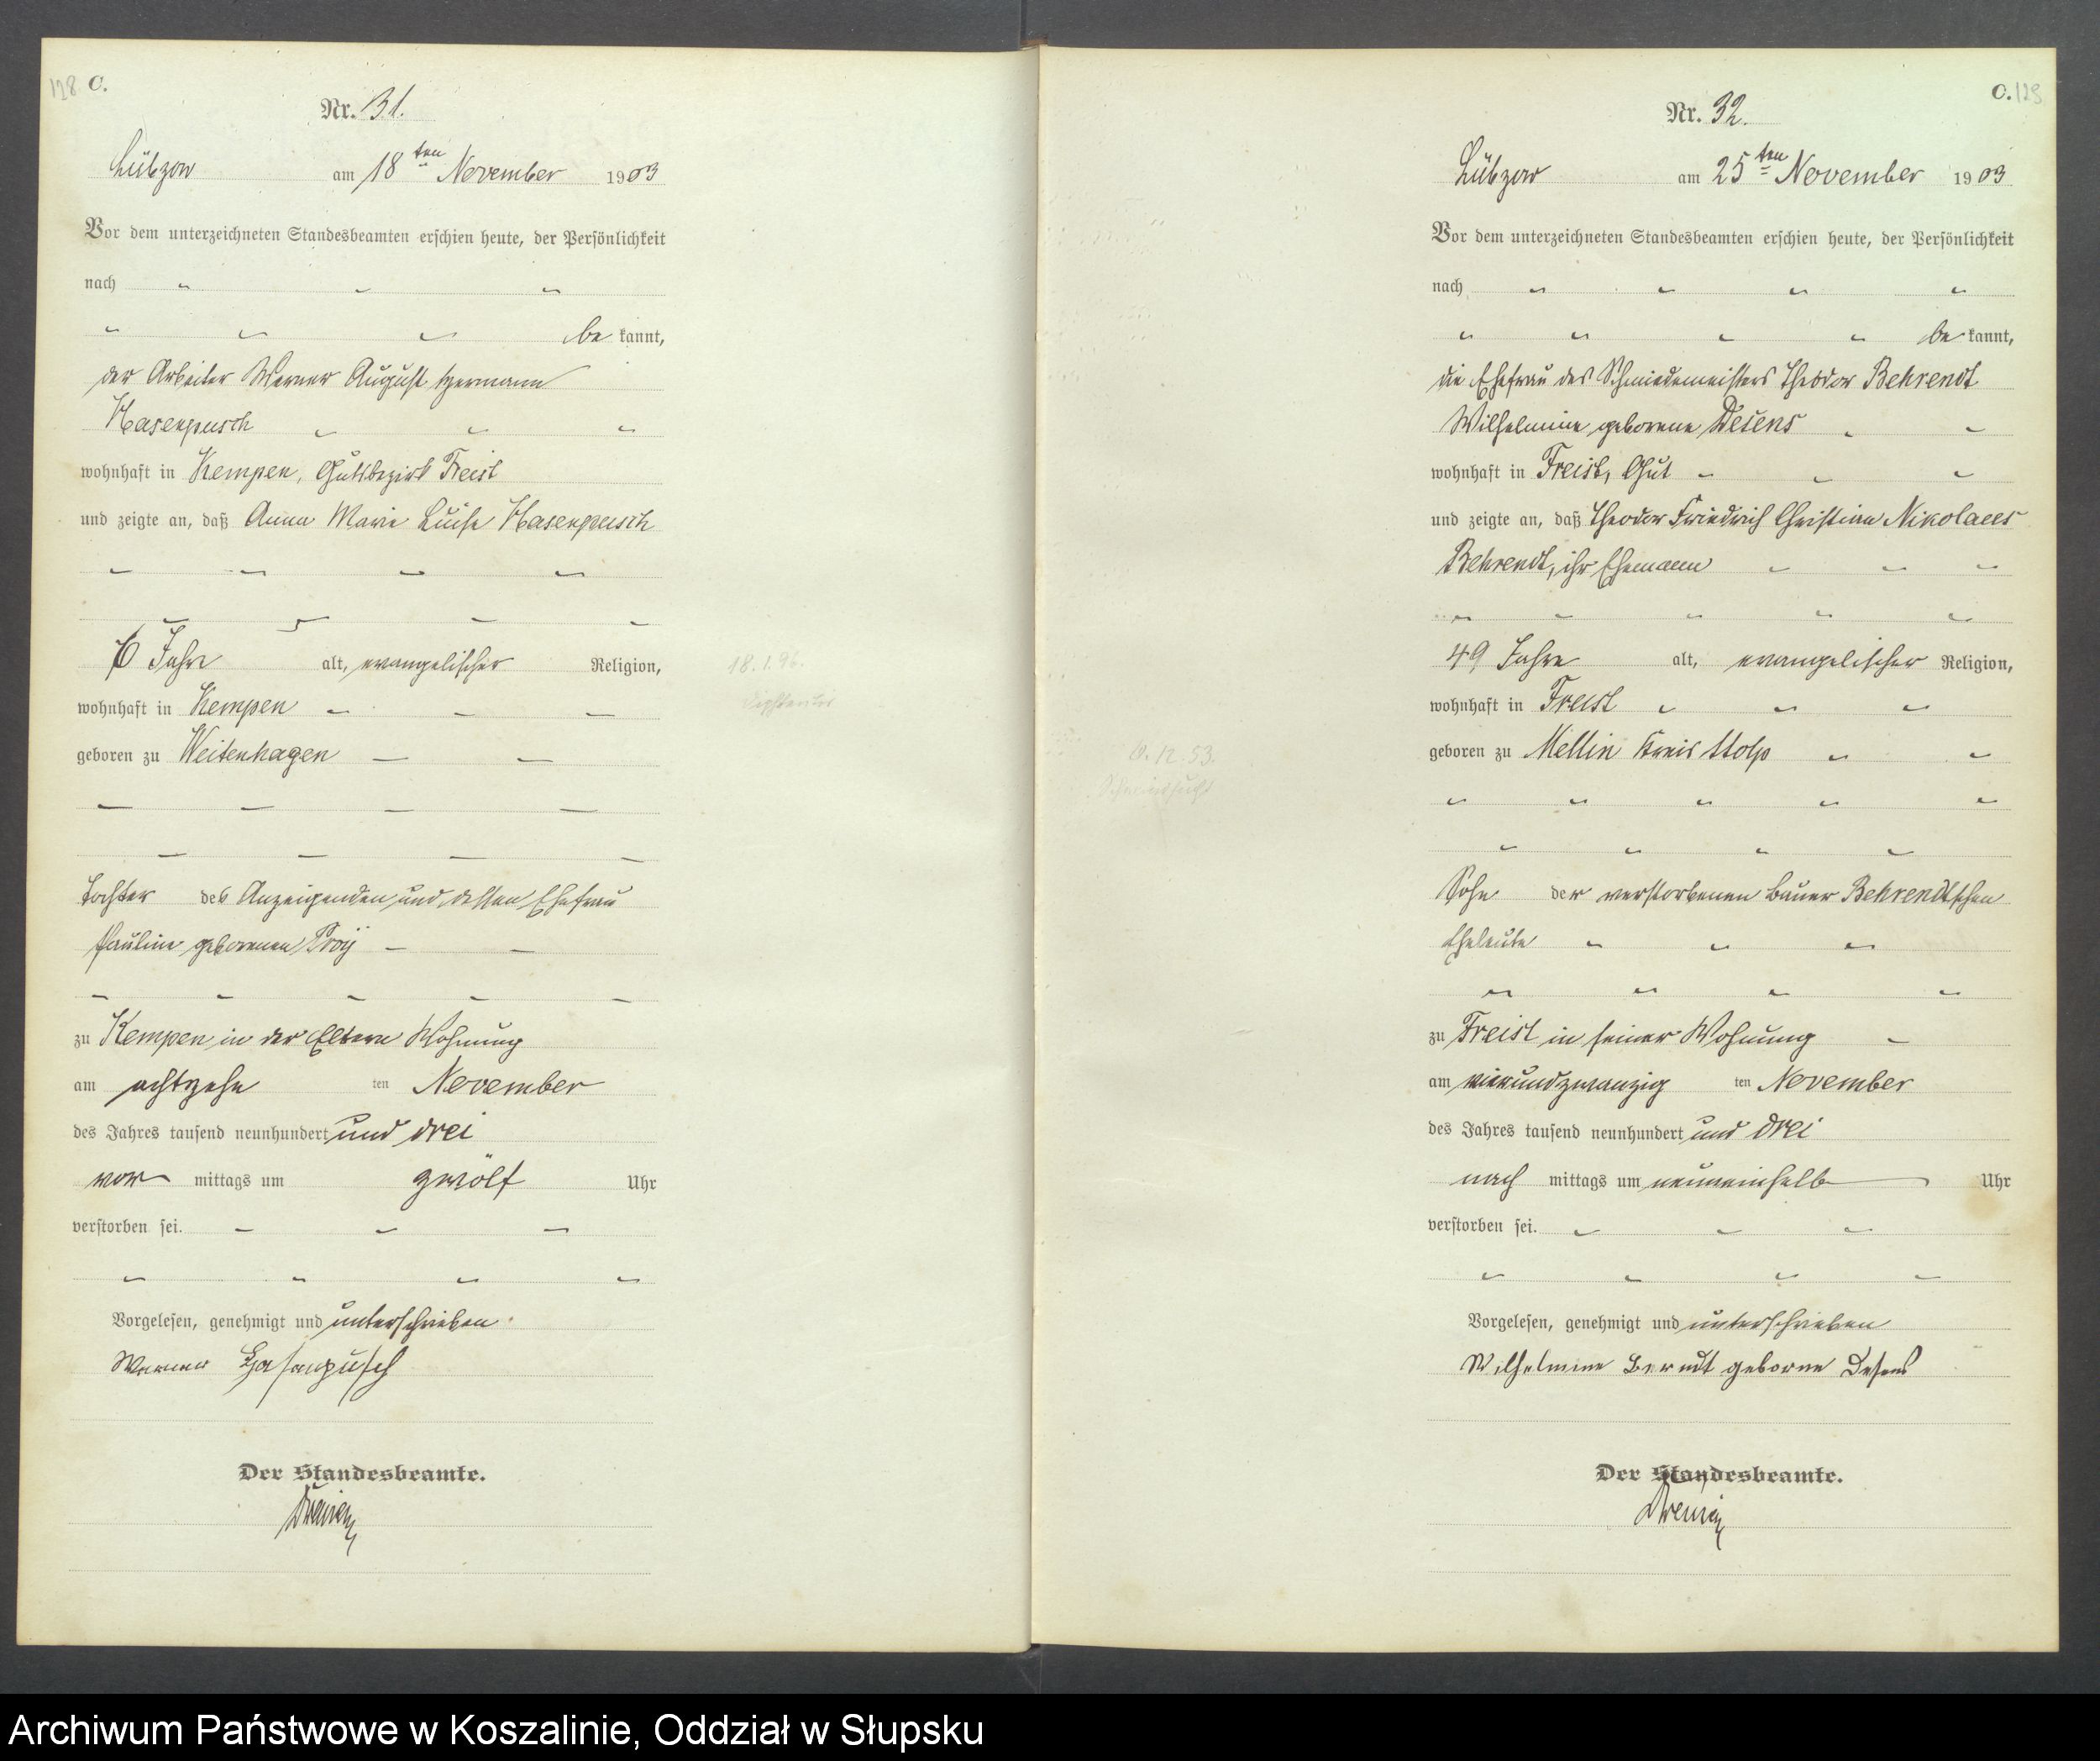 128 C.
Nr. 31.
Lübzow am 18ten November 1903
Vor dem unterzeichneten Standesbeamten erschien heute, der Persönlichkeit
nach
be kannt,
der Arbeiter Werner August Hermann
Hasenpusch
wohnhaft in Kempen, Gutsbezirk Freist
und zeigte an, daß Anna Marie Luise Hasenpusch
Jahr alt, evangelischer Religion,
wohnhaft in Kempen
geboren zu Weitenhagen
Tochter des Anzeigenden und dessen Ehefrau
Pauline geborenen
zu Kempen in der Eltern Wohnung
am achtzehn ten November
des Jahres tausend neunhundert und drei
vor mittags um zwölf Uhr
verstorben sei.
Vorgelesen, genehmigt und unterschrieben.
Werner Hasenpusch
Der Standesbeamte.
18.1.96.
C. 129
Nr. 32.
Lübzow am 25ten November 1903
Vor dem unterzeichneten Standesbeamten erschien heute, der Persönlichkeit
nach
be kannt,
die Ehefrau des Schmiedemeisters Theodor Behrendt
Wilhelmine geborene Desens
wohnhaft in Freist, Gut
und zeigte an, daß Theodor Friedrich Christian Nikolaus
Behrendt, ihr Ehemann
49 Jahre alt, evangelischer Religion,
wohnhaft in Freist
geboren zu Mellin Kreis Stolp
Sohn der verstorbenen Bauer Behrendtschen
Eheleute
zu Freist in seiner Wohnung
am vierundzwanzig ten November
des Jahres tausend neunhundert und drei
nach mittags um neuneinhalb Uhr
verstorben sei.
Vorgelesen, genehmigt und unterschrieben
Wilhelmine Berndt geborne Desens
Der Standesbeamte.
12.53.
Schwindsucht
Archiwum Państwowe w Koszalinie, Oddział w Słupsku